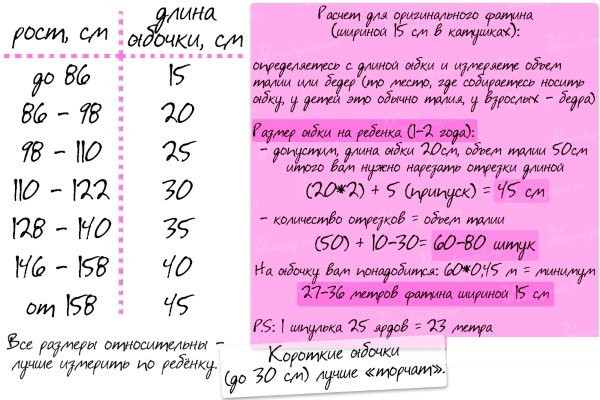 рост, см
длина юбочки, см
до 86 15
86 - 98 20
98 - 110 25
110 - 122 30
128 - 140 35
146 - 158 40
от 158 45
Все размеры относительны -
лучше измерить по ребёнку.
Расчет для оригинального фатина
(шириной 15 см в катушках):
определяетесь с длиной юбки и измеряете объем
талии или бедер (то место, где собираетесь носить
юбку, у детей это обычно талия, у взрослых - бедра)
Размер юбки на ребенка (1-2 года):
- допустим, длина юбки 20см, объем талии 50см
итого вам нужно нарезать отрезки длиной
(20*2) + 5 (припуск) = 45 см
- количество отрезков = объем талии
(50) + 10-30= 60-80 штук
На юбочку вам понадобится: 60*0,45 м = минимум
27-36 метров фатина шириной 15 см
P.S: 1 шпулька 25 ярдов = 23 метра
Короткие юбочки
(до 30 см) лучше «торчат».